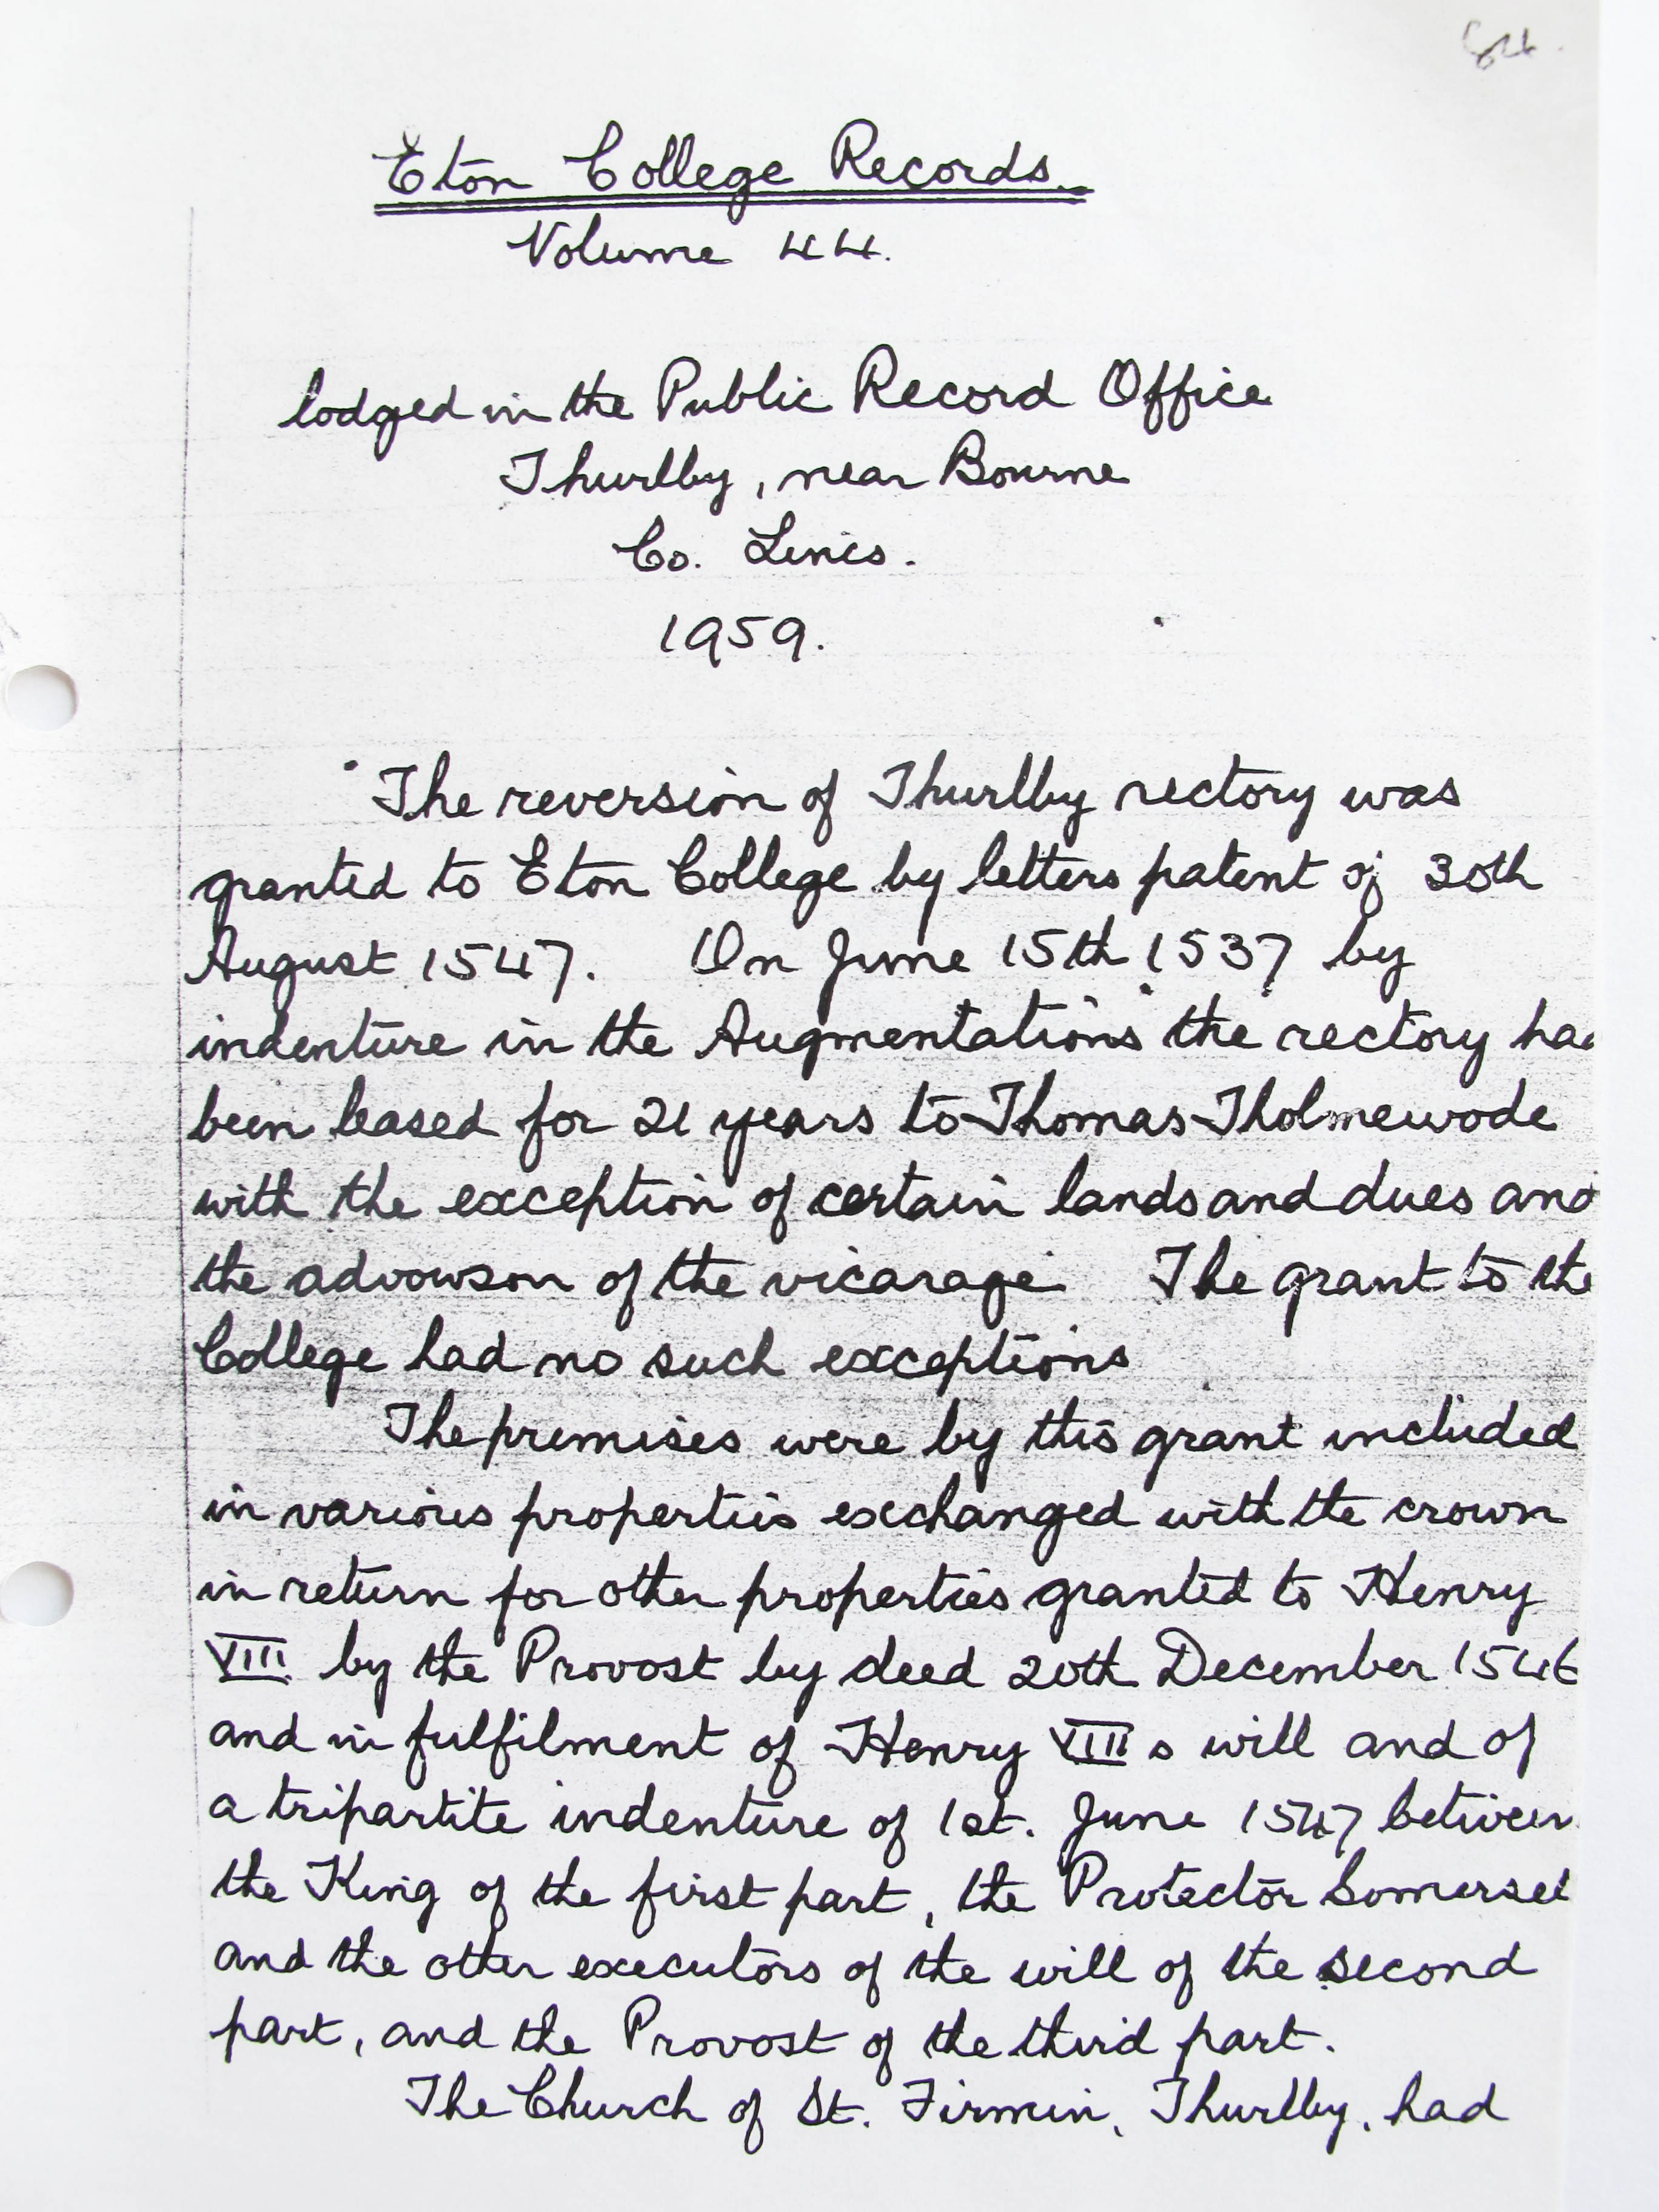 Eton College Records.
Volume 44.
lodged in the Public Record Office
Thurlby, near Bourne
Co. Lincs.
1959.
The reversion of Thurlby rectory was
granted to Eton College by letters patent of 30th
August 1547. On June 15th 1537 by
indenture in the Augmentations the rectory had
been leased for 21 years to Thomas Tholmewode
with the exception of certain lands and dues and
the advowson of the vicarage. The grant to the
College had no such exceptions
The premises were by this grant included
in various properties exchanged with the crown
in return for other properties granted to Henry
VIII by the Provost by deed 20th December 1546
and in fulfilment of Henry VIII s will and of
a tripartite indenture of 1st. June 1547 between
the King of the first part, the Protector Somerset
and the other executors of the will of the second
part, and the Provost of the third part.
The Church of St. Firmin, Thurlby, had